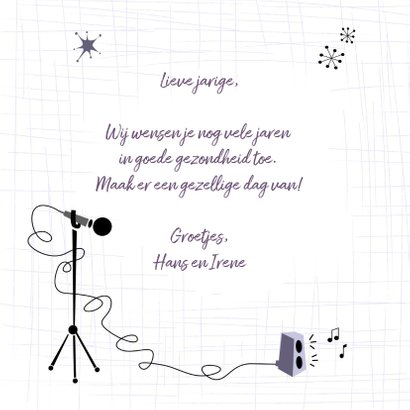 Lieve jarige,
Wij wensen je nog vele jaren
in goede gezondheid toe.
Maak er een gezellige dag van!
Groetjes,
Hans en Irene